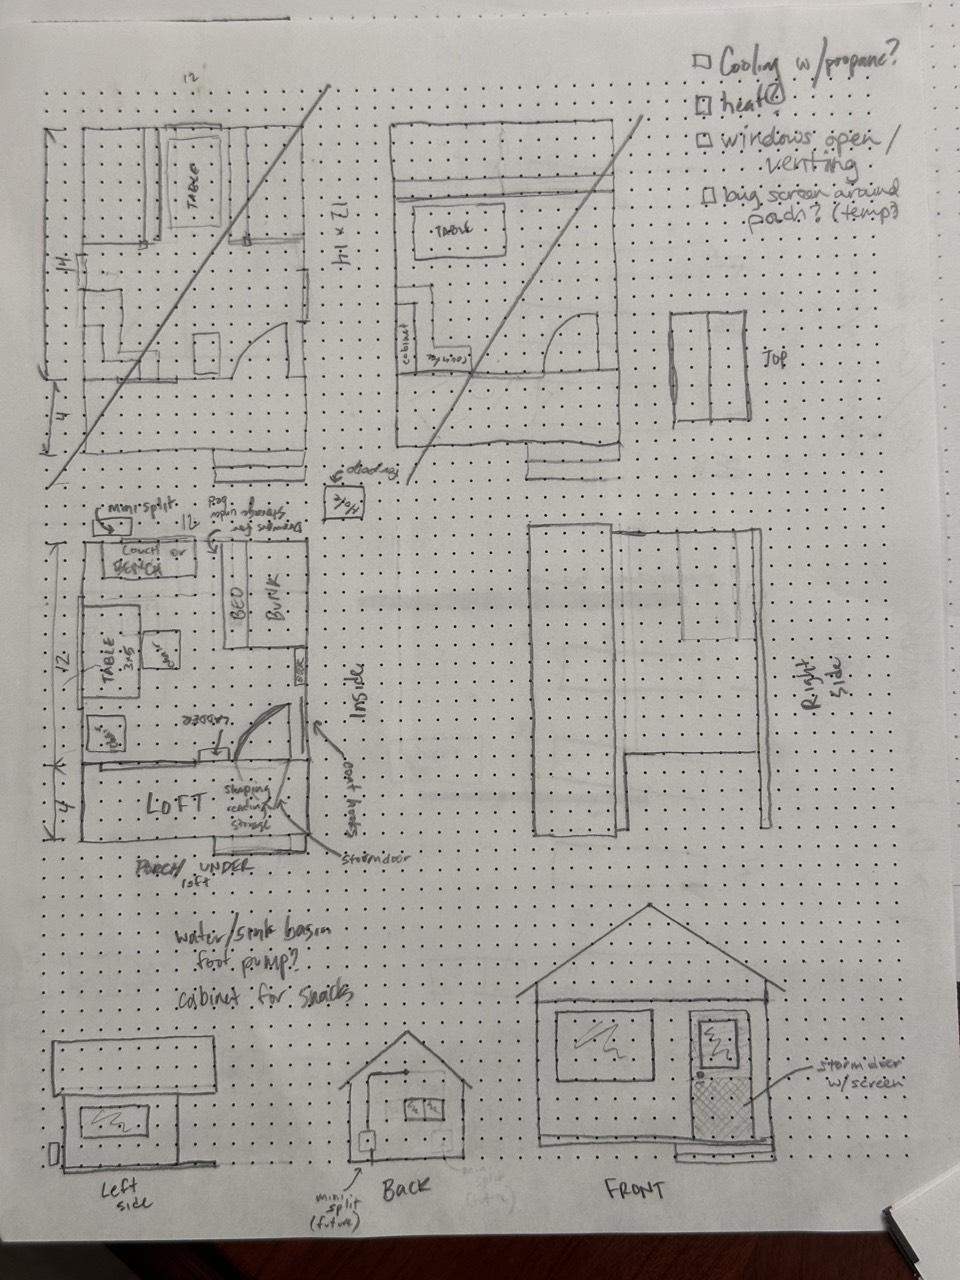 ☐ Cooling w/propane?
☐ heat?
☐ windows open/
venting
☐ bug screen around
poach? (temp?
12
14
4
TABLE
12 x 14
TABLE
cabinet
TOP
Hole
mini split
12
Drawers for
Storage under
bed
Couch or
BENCH
BED
BUNK
TABLE
3x5
12
LADDER
Inside
4
LOFT
reading
storage
stormdoor
PORCH UNDER
loft
Right
side
water/sink basin
foot pump?
cabinet for snacks
stormdoor
w/screen
Left
side
mini
split
(future)
Back
mini
split
(future)
FRONT